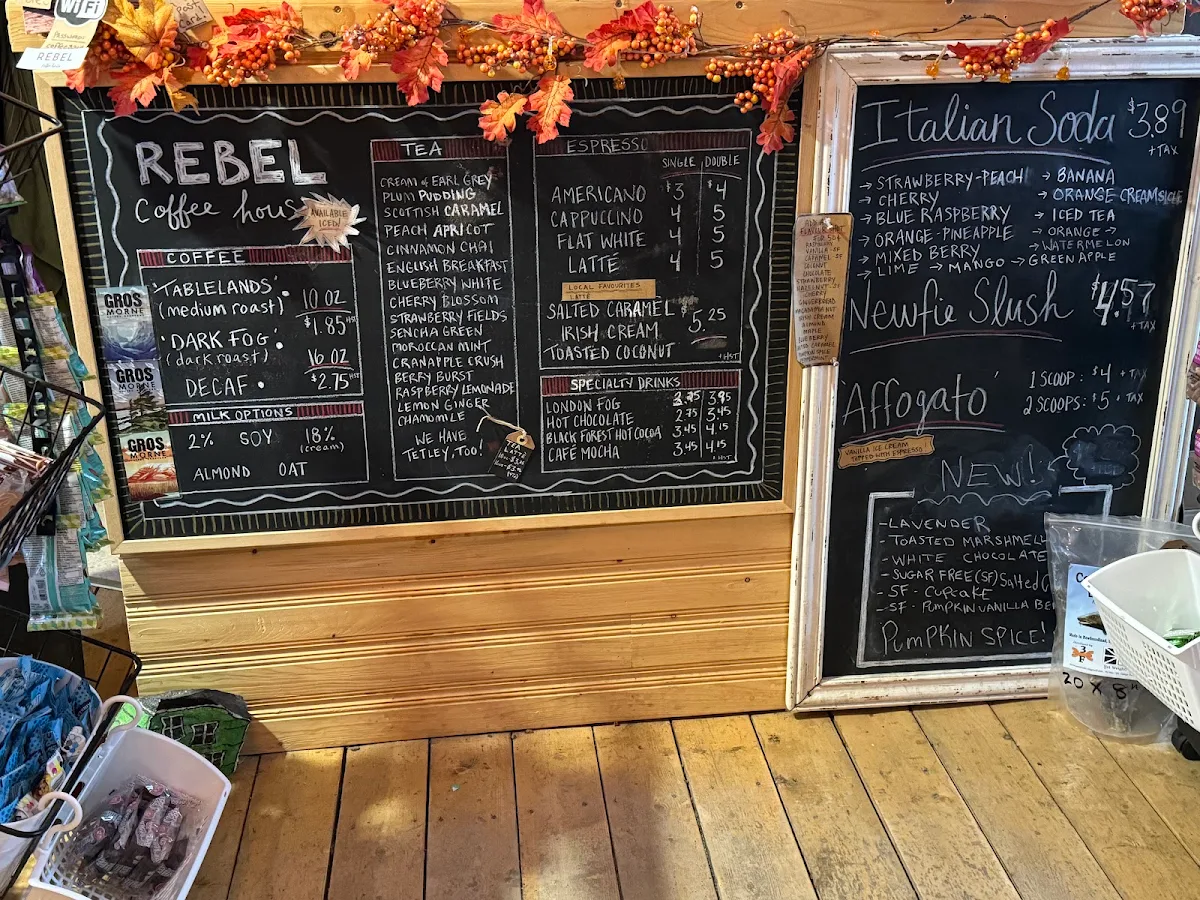 WiFi
REBEL
REBEL
Coffee hous
AVAILABLE
ICED!
COFFEE
'TABLELANDS'
(medium roast)
'DARK FOG'
(dark roast)
DECAF
10 OZ
$1.85 HST
16 OZ
$2.75 HST
MILK OPTIONS
2% SOY 18%
(cream)
ALMOND OAT
GROS
MORNE
GROS
MORNE
GROS
MORNE
TEA
CREAM of EARL GREY
PLUM PUDDING
SCOTTISH CARAMEL
PEACH APRICOT
CINNAMON CHAI
ENGLISH BREAKFAST
BLUEBERRY WHITE
CHERRY BLOSSOM
STRAWBERRY FIELDS
SENCHA GREEN
MOROCCAN MINT
CRANAPPLE CRUSH
BERRY BURST
RASPBERRY LEMONADE
LEMON GINGER
CHAMOMILE
WE HAVE
TETLEY, TOO!
LATTE
ESPRESSO
SINGLE DOUBLE
AMERICANO $3 $4
CAPPUCCINO 4 5
FLAT WHITE 4 5
LATTE 4 5
LOCAL FAVOURITES
LATTE
SALTED CARAMEL
IRISH CREAM
TOASTED COCONUT
$5.25
+HST
SPECIALTY DRINKS
LONDON FOG 3.95
HOT CHOCOLATE 2.75 3.45
BLACK FOREST HOT COCOA 3.45 4.15
CAFÉ MOCHA 3.45 4.15
+HST
Italian Soda $3.89
+TAX
→ STRAWBERRY-PEACH → BANANA
→ CHERRY → ORANGE CREAMSICLE
→ BLUE RASPBERRY → ICED TEA
→ ORANGE-PINEAPPLE → ORANGE →
→ MIXED BERRY → WATERMELON
→ LIME → MANGO → GREEN APPLE
Newfie Slush $4.57
+TAX
'Affogato'
1 SCOOP: $4 + TAX
2 SCOOPS: $5 + TAX
VANILLA ICE CREAM
TOPPED WITH ESPRESSO!
NEW!
-LAVENDER
-TOASTED MARSHMELL
-WHITE CHOCOLATE
-SUGAR FREE (SF) Salted C
-SF - CUPCAKE
-SF - PUMPKIN VANILLA BE
'PUMPKIN SPICE!
20 X 8"